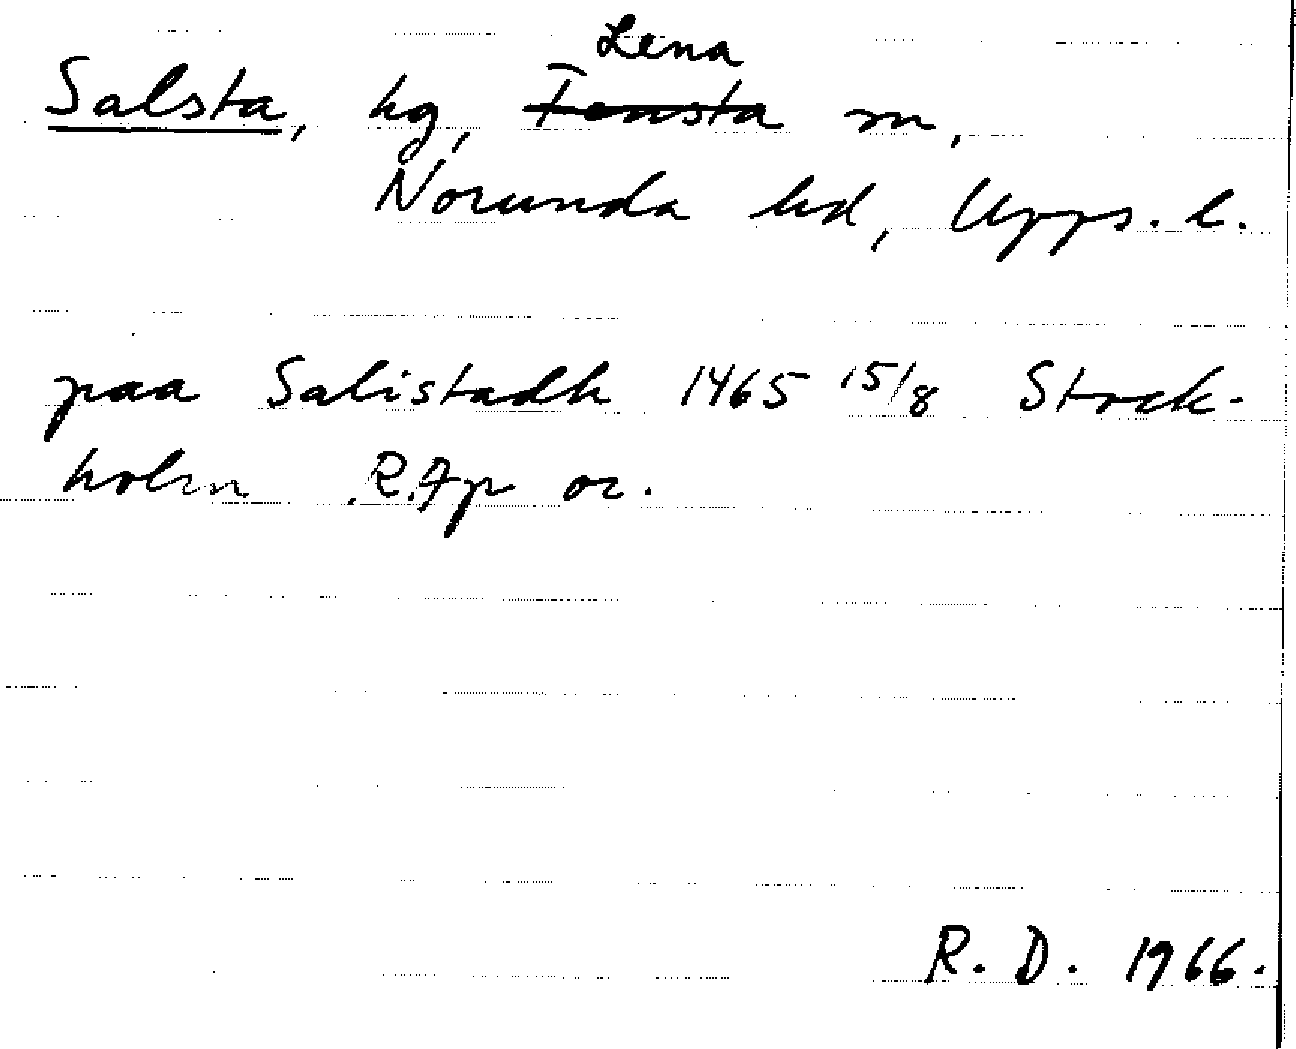 Lena
Salsta, hg, Tensta sn,
Norunda hd, Upps. l.
paa Salistadh 1465 15/8 Stock-
holm RAp or.
R. D. 1966.